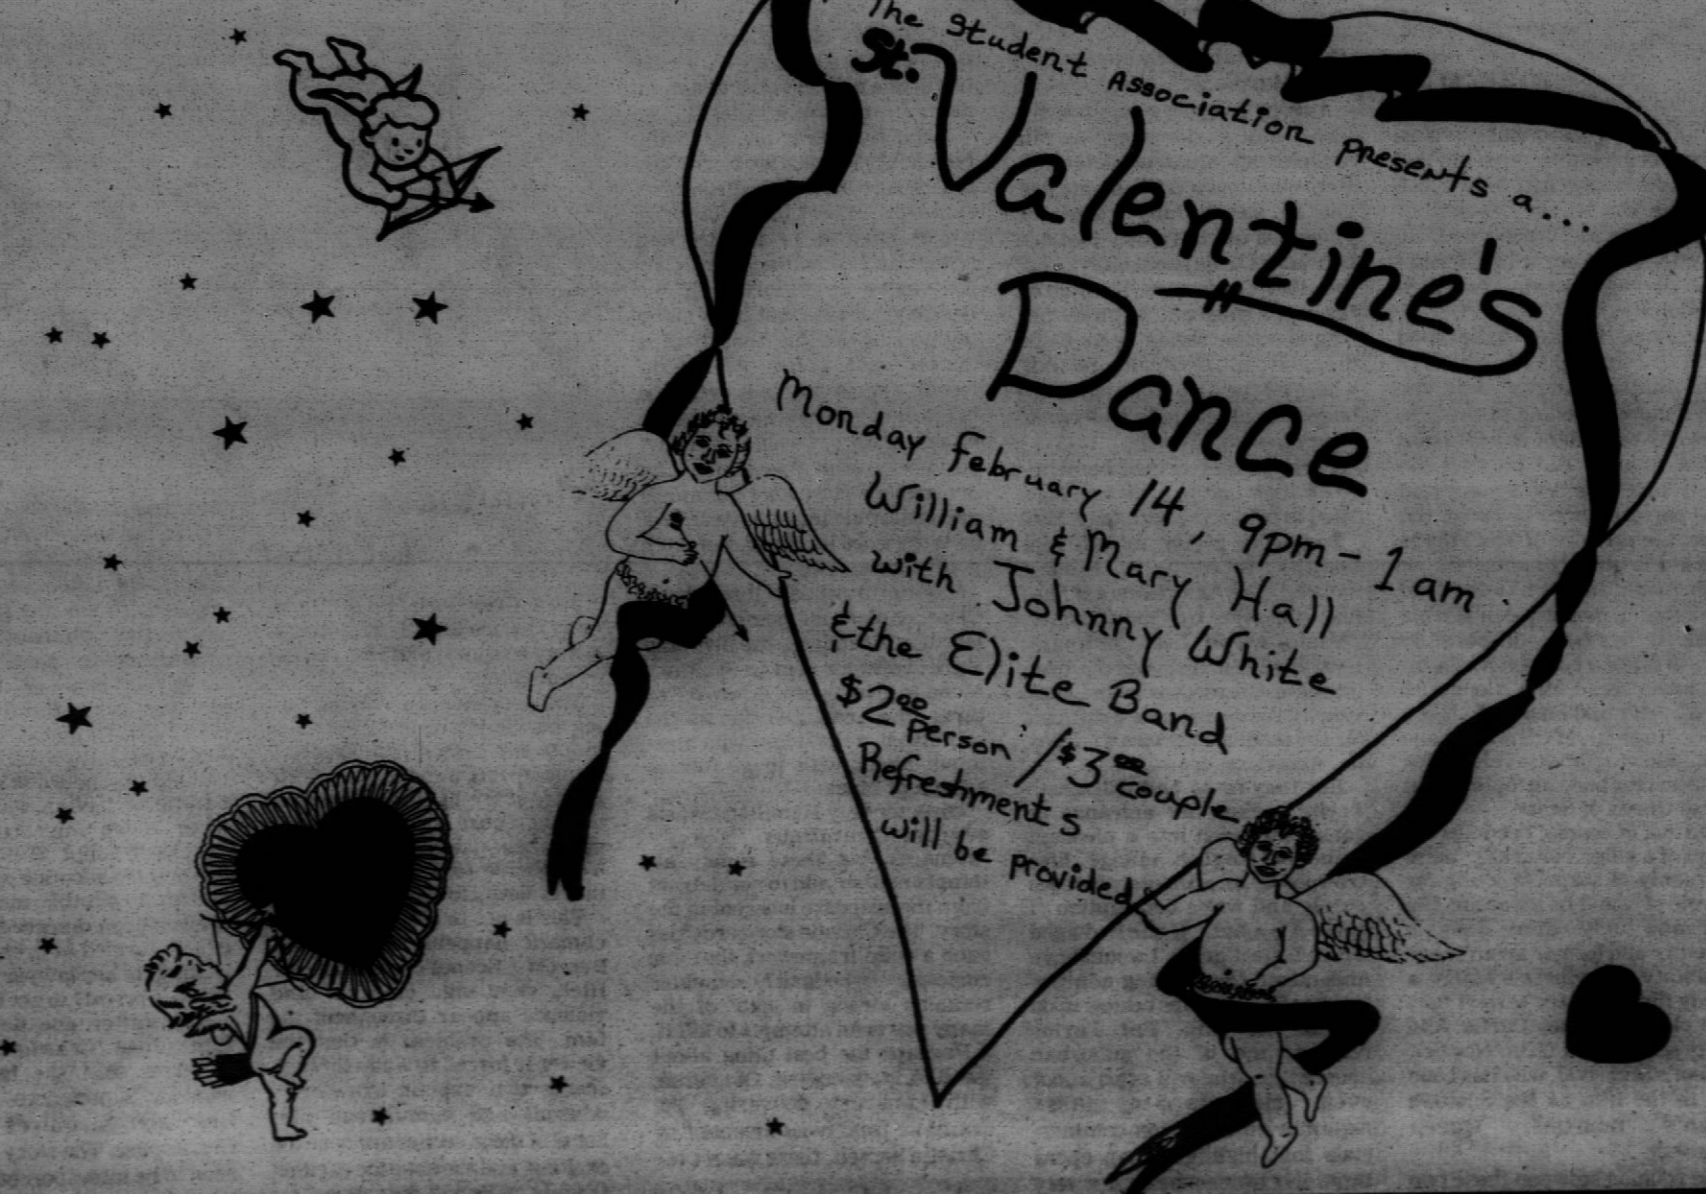 The Student Association presents a...
St. Valentine's
Dance
Monday February 14, 9pm - 1am
William & Mary Hall
with Johnny White
& the Elite Band
$2.00 person / $3.00 couple
Refreshments
will be provided